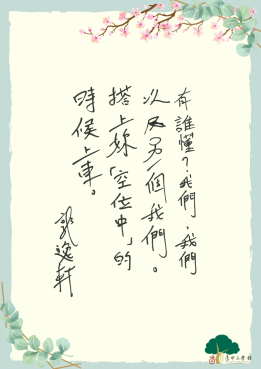 有誰懂？我們，我們
以及另一個我們。
搭上妳「空位中」的
時候上車。
郭逸軒
臺中文學館